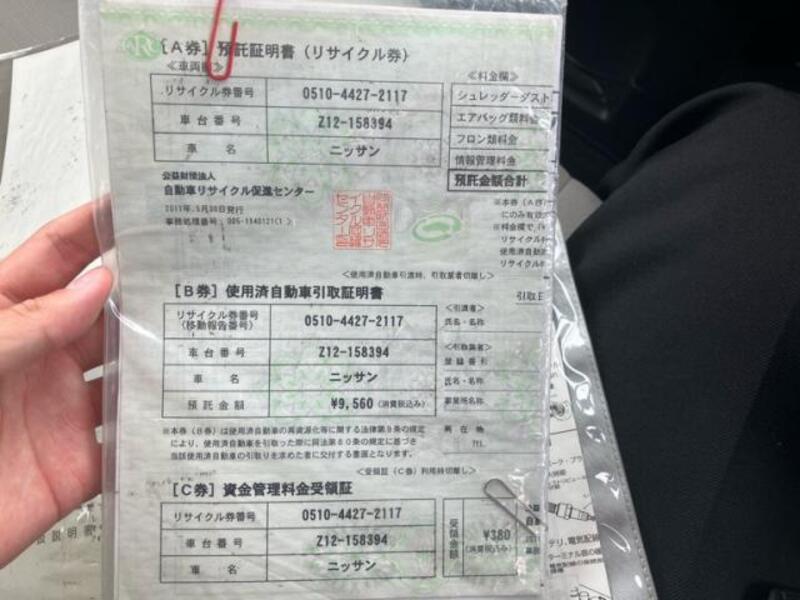 [A券] 預託証明書（リサイクル券）
≪車両欄≫
リサイクル券番号 0510-4427-2117
車台番号 Z12-158394
車名 ニッサン
≪料金欄≫
シュレッダーダスト
エアバッグ類料金
フロン類料金
情報管理料金
預託金額合計
公益財団法人
自動車リサイクル促進センター
2011年.5月30日発行
※本券（A券）
にのみ有効
※料金欄で、
リサイクル
使用済自動
リサイクル
＜使用済自動車引渡時、引取業者切離し＞
[B券] 使用済自動車引取証明書
引取日
リサイクル券番号
（移動報告番号） 0510-4427-2117
車台番号 Z12-158394
車名 ニッサン
預託金額 ¥9,560（消費税込み）
＜引渡者＞
氏名・名称
＜引取業者＞
登録番号
氏名・名称
事業所名称
所在地
TEL
※本券（B券）は使用済自動車の再資源化等に関する法律第9条の規定
により、使用済自動車を引取った際に同法第80条の規定に基づき
当該使用済自動車の引取りを求めた者に交付する書面となります。
＜受領証（C券）利用時切離し＞
[C券] 資金管理料金受領証
リサイクル券番号 0510-4427-2117
車台番号 Z12-158394
車名 ニッサン
受領金額 ¥380
（消費税込み）
扱説明書